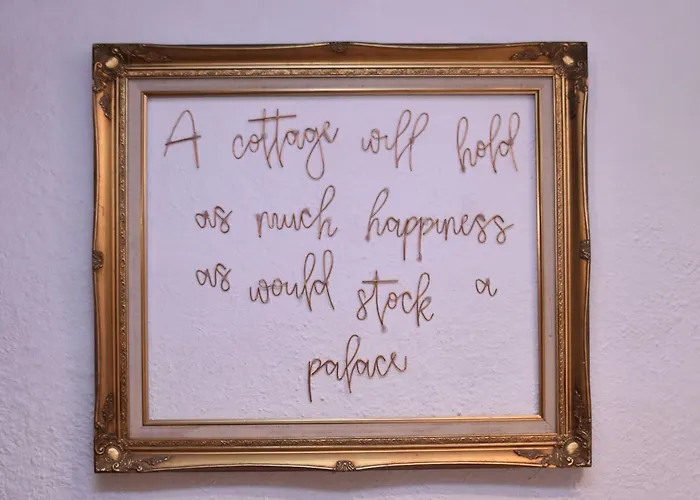 A cottage will hold
as much happiness
as would stock a
palace